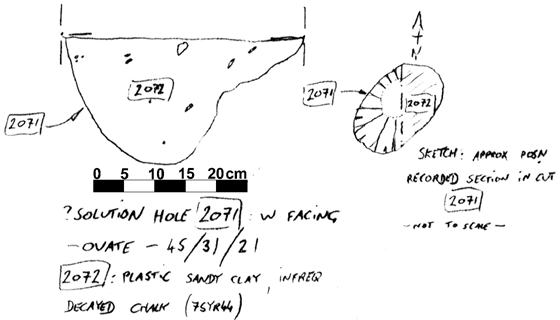 2072
2071
0 5 10 15 20cm
? SOLUTION HOLE 2071 : W FACING
- OVATE - 45/31/21
2072 : PLASTIC SANDY CLAY, INFREQ
DECAYED CHALK (75YR44)
N
2071
2072
SKETCH: APPROX POSN
RECORDED SECTION IN CUT
2071
- NOT TO SCALE -